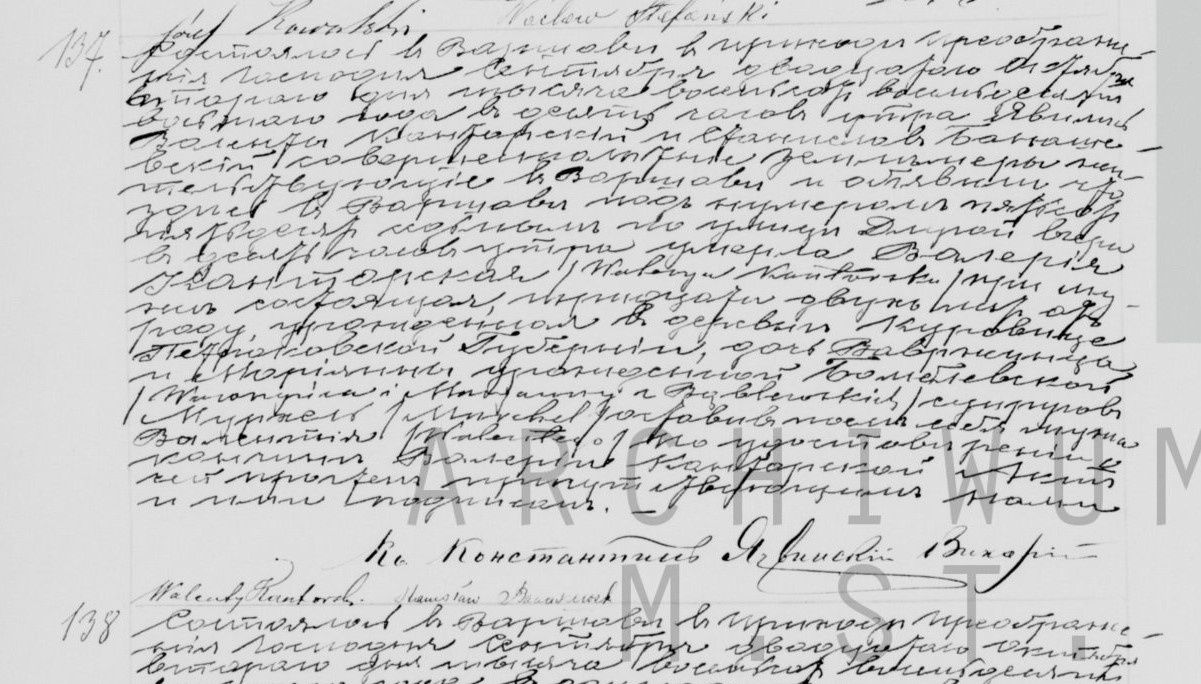 Józef Kowalski Wacław Stefański
137. Состоялось въ Варшавѣ въ приходѣ Преображе-
нія Господня Сентября двадцатаго Октяб
втораго дня тысяча восемьсот восемьдесят
восьмаго года въ десять часовъ утра Явились
Валенты Канторскій и Станиславъ Банаше-
вскій совершеннолѣтніе жи-
тельствующіе въ Варшавѣ и объявили что
въ Варшавѣ подъ нумеромъ пятьсот
пятьдесят по улицѣ Дикой вчера
въ десять часовъ утра умерла Валерія
Канторская /Walerya Kantorska/ при му-
жѣ состоящая, тридцати двухъ лѣт отъ
роду, урожденная въ деревнѣ Куровице
Петроковской Губерніи, дочь Ваврженца
и Маріянны урожденной Бомблевской
/Wawrzyńca i Maryanny z Bąblewskich/ супруговъ
/Murchel/ оставивъ послѣ себя мужа
Валентія /Walentego/ По удостовѣреніи о
кончинѣ Валеріи Канторской Актъ
сей прочтенъ присутствующимъ Нами
и ими подписанъ. —
Кс Константинъ Викарій
Walenty Kantorski. Stanisław
138 Состоялось въ Варшавѣ въ приходѣ Преображе-
нія Господня Сентября двадцатаго Октября
втораго дня тысяча восемьсот восемьдесят
ARCHIWUM
M. ST.